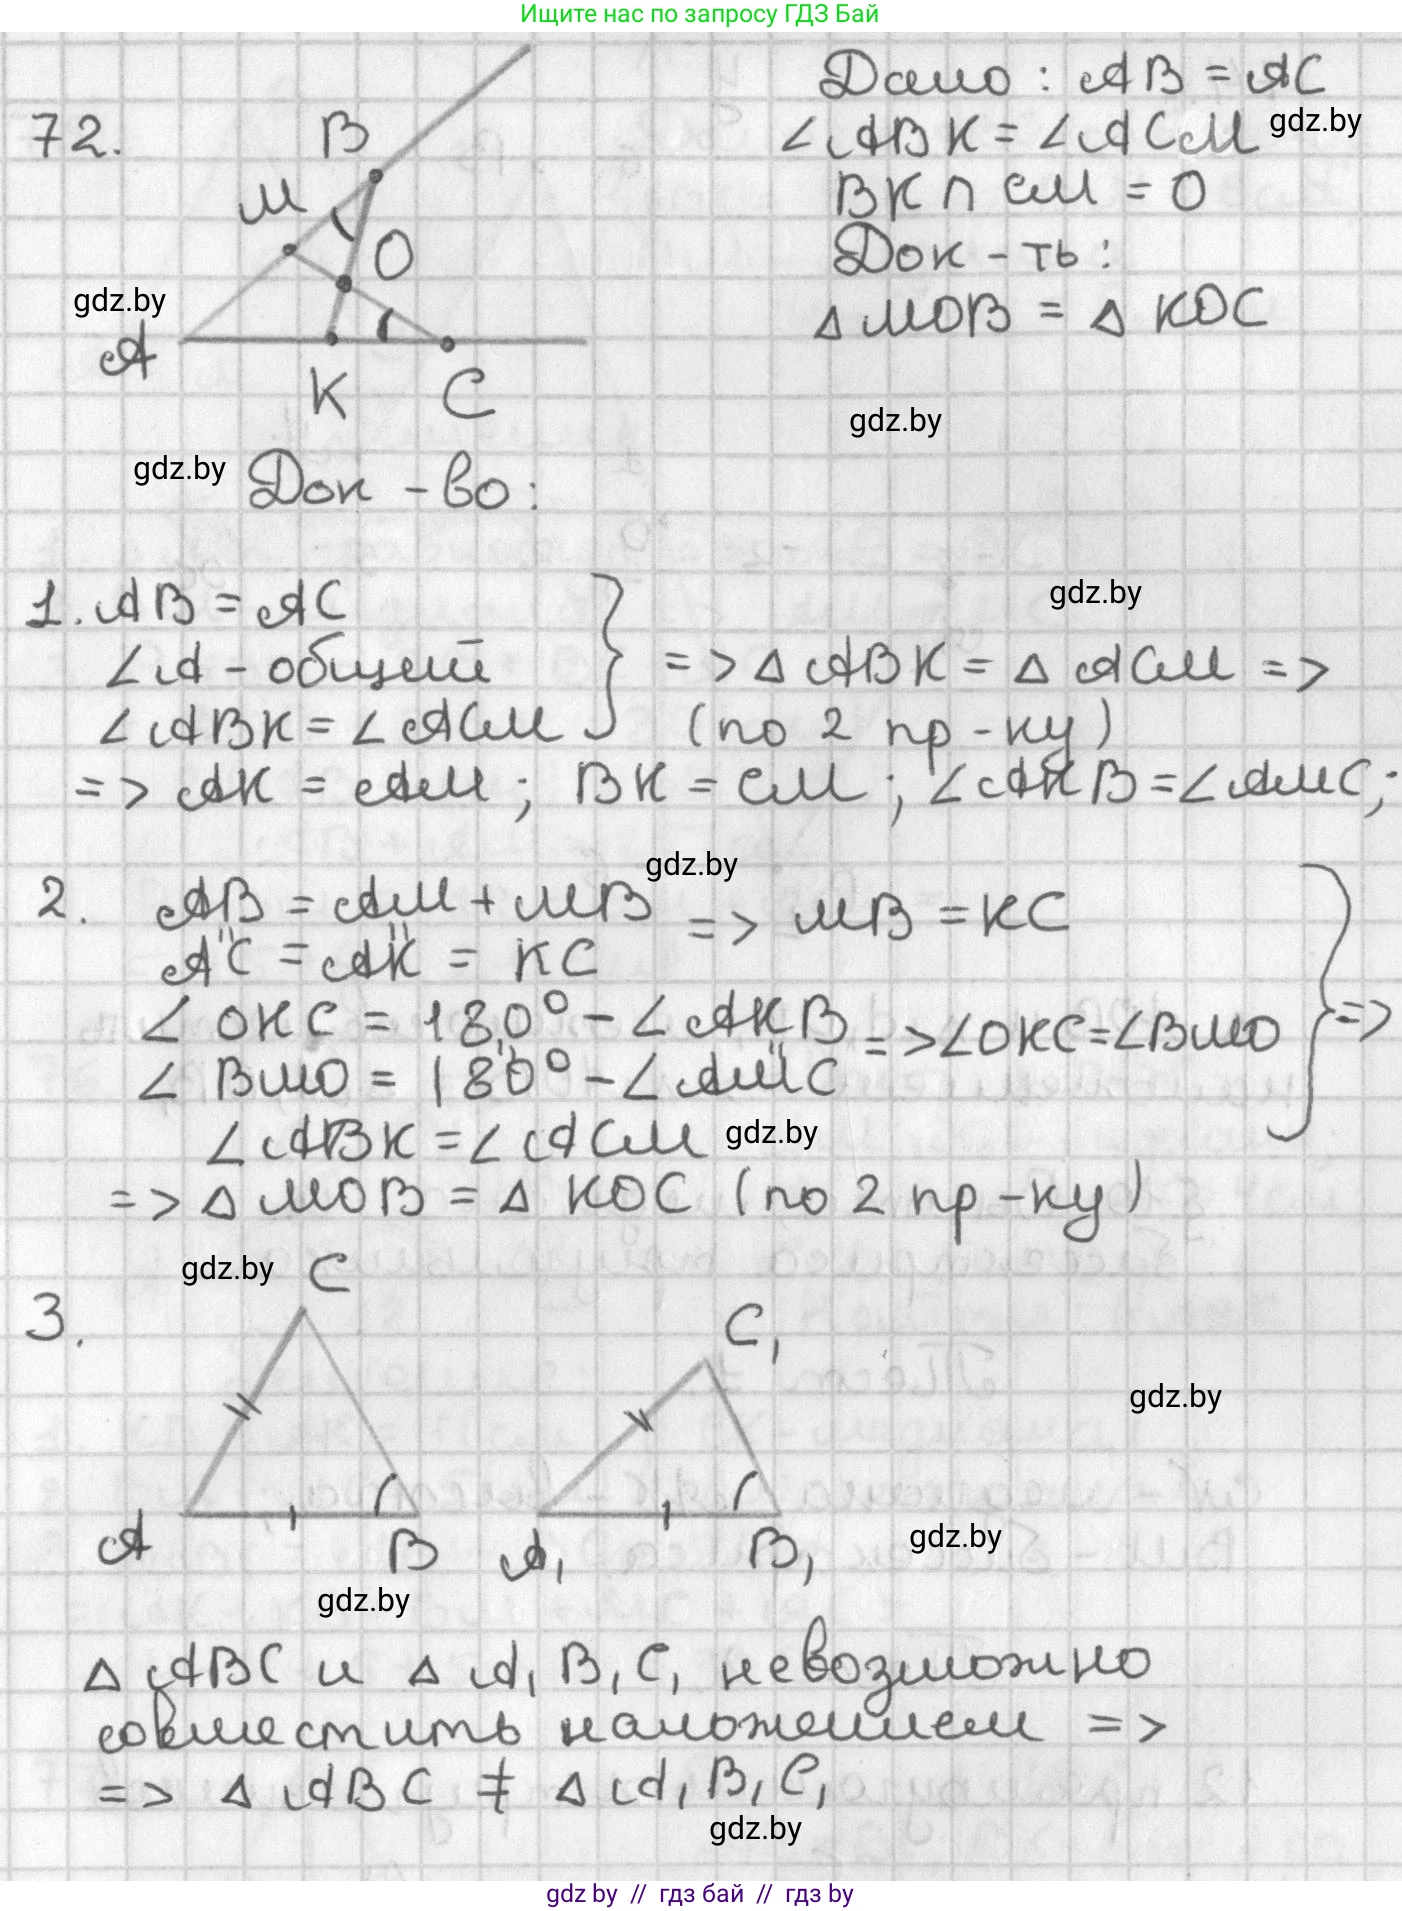 Ищите нас по запросу ГДЗ Бай
72.
B
M
O
A
K
C
Дано : AB = AC
∠ABK = ∠ACM
BK ∩ CM = O
Док-ть:
△ MOB = △ KOC
gdz.by
gdz.by
gdz.by
gdz.by
Док-во:
1. AB = AC
∠A - общий
∠ABK = ∠ACM
=> △ ABK = △ ACM =>
(по 2 пр-ку)
gdz.by
=> AK = AM ; BK = CM ; ∠AKB = ∠AMC ;
gdz.by
2. AB = AM + MB
AC = AK = KC
=> MB = KC
∠ OKC = 180° - ∠AKB
∠ BMO = 180° - ∠AMC
=> ∠OKC = ∠BMO
=>
∠ABK = ∠ACM
gdz.by
=> △ MOB = △ KOC (по 2 пр-ку)
gdz.by
3.
C
A
B
C₁
A₁
B₁
gdz.by
gdz.by
gdz.by
△ ABC и △ A₁B₁C₁ невозможно
совместить наложением =>
=> △ ABC ≠ △ A₁B₁C₁
gdz.by
gdz by // гдз бай // гдз by